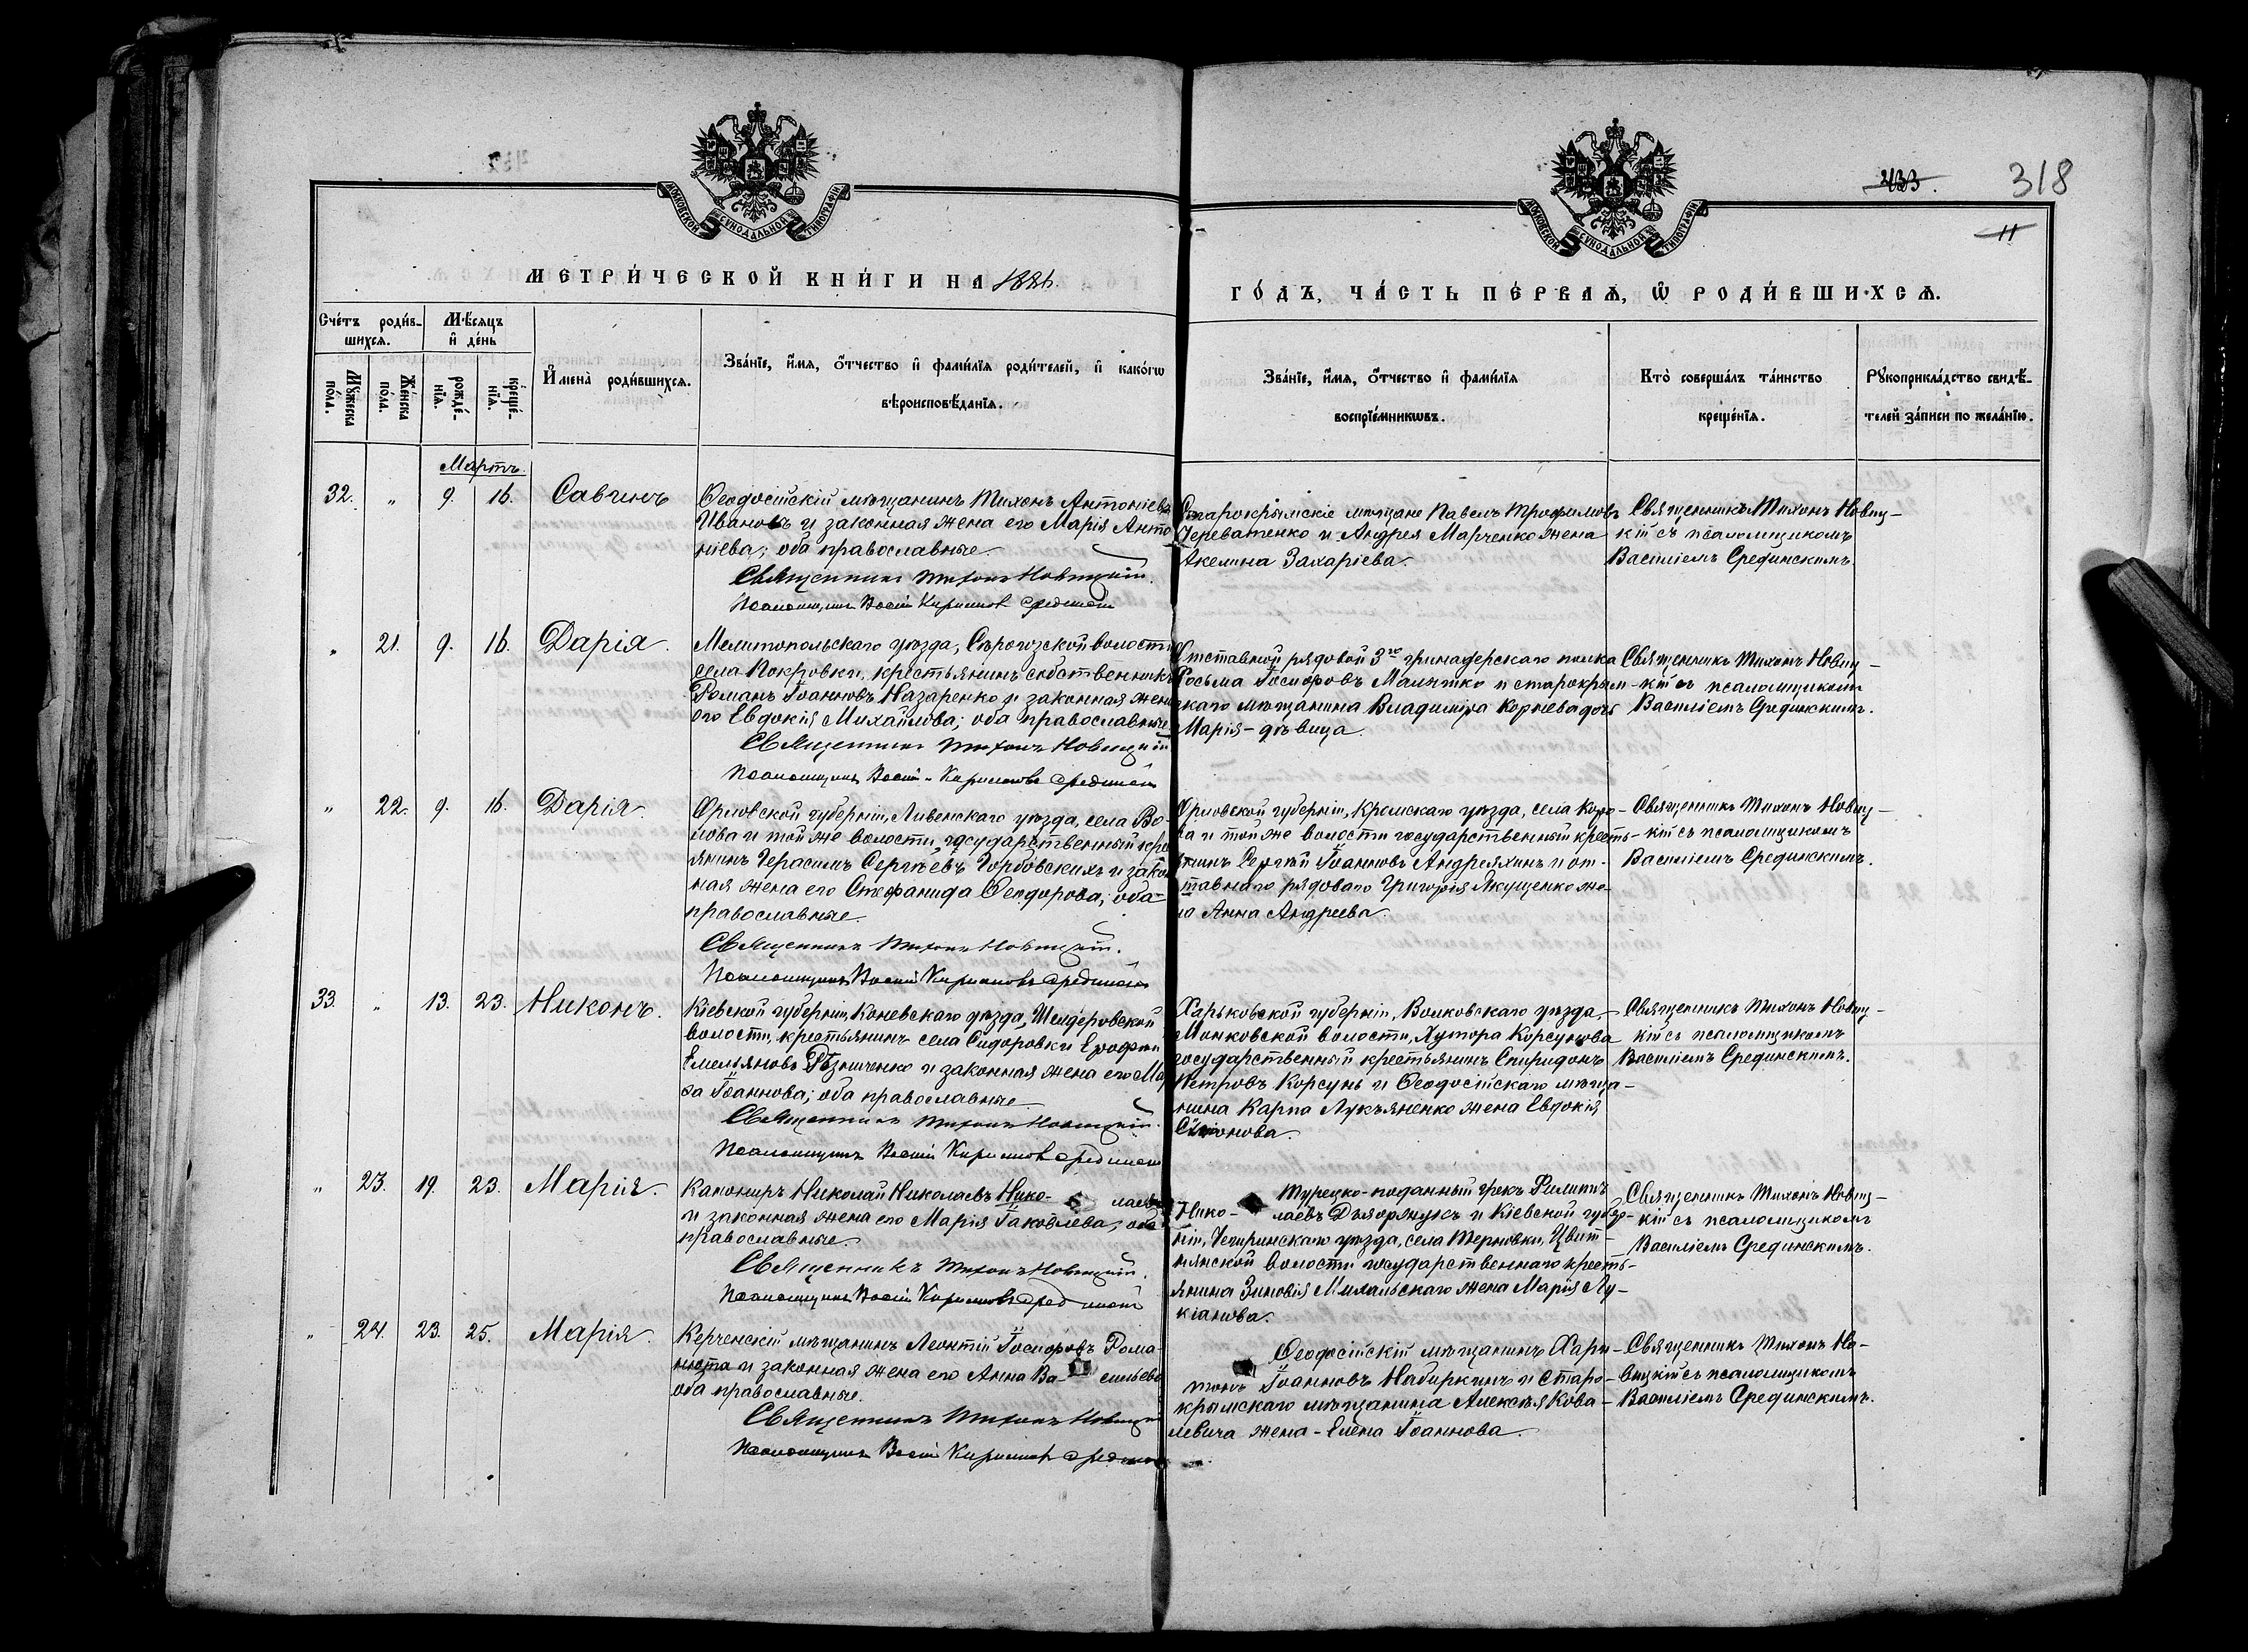 433. 318
11
МОСКОВСКОЙ СѴНОДАЛЬНОЙ ТИПОГРАФІИ
МОСКОВСКОЙ СѴНОДАЛЬНОЙ ТИПОГРАФІИ
МЕТРИ́ЧЕСКОЙ КНИ́ГИ НА 1886.
ГО́ДЪ, ЧА́СТЬ ПЕ́РВАѦ, Ѽ РОДИ́ВШИХСѦ.
Сче́тъ роди́в-
шихсѧ.
Мѣ́сяцъ
и҆ де́нь
Мꙋ́жеска
по́ла.
Же́нска
по́ла.
рожде́-
нїѧ.
креще́-
нїѧ.
И҆мена̀ роди́вшихсѧ.
Зва́нїе, и҆́мѧ, ѻ҆́тчество и҆ фами́лїѧ роди́телей, и҆ како́гѡ
вѣроисповѣ́данїѧ.
Зва́нїе, и҆́мѧ, ѻ҆́тчество и҆ фами́лїѧ
воспрїе́мникѡвъ.
Кто̀ соверша́лъ та́инство
креще́нїѧ.
Рꙋкоприкла́дство свидѣ́-
телей за́писи по жела́нїю.
Мартъ.
32. " 9. 16. Савинъ
Ѳеодосійскій мѣщанинъ Тихонъ Антоніевъ
Ивановъ и законная жена его Марія Анто
ніева; оба православные.
Священникъ Тихонъ Новицкій.
Псаломщикъ Васілій Кириловъ Срединскій
Старокрымскіе мѣщане Павелъ Трофимовъ
Череватенко и Андрея Марченко жена
Акелина Захаріева.
Священникъ Тихонъ Новиц-
кій съ псаломщикомъ
Василіемъ Срединскимъ.
" 21. 9. 16. Дарія.
Мелитопольскаго уѣзда, Сѣрогозской волости
села Покровки, крестьянинъ собственникъ
Романъ Іоанновъ Назаренко и законная жена
его Евдокія Михайлова; оба православные
Священникъ Тихонъ Новицкій
Псаломщикъ Васілій Кириловъ Срединскій
Отставной рядовой 3го гринадерскаго полка
Косьма Госифоровъ Малитко и старокрым-
скаго мѣщанина Владиміра Корнева дочь
Марія - дѣвица.
Священникъ Тихонъ Новиц-
кій съ псаломщикомъ
Василіемъ Срединскимъ.
" 22. 9. 16. Дарія.
Орловской губерніи, Ливенскаго уѣзда, села Во-
лова и той же волости, государственный кре
янинъ Герасимъ Сергѣевъ Горбовскихъ и закон
ная жена его Стефанида Ѳеодорова; оба
православные.
Священникъ Тихонъ Новицкій.
Псаломщикъ Васілій Кириловъ Срединскій
Орловской губерніи, Кромскаго уѣзда, села Коро-
ва и той же волости государственный кресть-
янинъ Сергѣй Іоанновъ Андреяхинъ и от-
ставнаго рядоваго Григорія Якущенко же-
на Анна Андреева.
Священникъ Тихонъ Новиц-
кій съ псаломщикомъ
Василіемъ Срединскимъ.
33. " 13. 23. Никонъ.
Кіевской губерніи, Каневскаго уѣзда, Шендеровской
волости, крестьянинъ села Сидоровки Ерофей
Емельяновъ Рѣзниченко и законная жена его Ма
ра Іоаннова; оба православные
Священникъ Тихонъ Новицкій.
Псаломщикъ Васілій Кириловъ Срединскій
Харьковской губерніи, Волковскаго уѣзда,
волости, Хутора Корсунова
государственный крестьянинъ Спиридонъ
Петровъ Корсунь и Ѳеодосійскаго мѣща-
нина Карпа Лукьяненко жена Евдокія
Симонова.
Священникъ Тихонъ Новиц-
кій съ псаломщикомъ
Василіемъ Срединскимъ.
" 23. 19. 23. Марія.
Канониръ Николай Николаевъ Нико- лаевъ
и законная жена его Марія Іаковлева; оба
православные.
Священникъ Тихонъ Новицкій.
Псаломщикъ Васілій Кириловъ Срединскій
Турецко-поданный грекъ Филиппъ
Нико- лаевъ и Кіевской губер-
ніи, Чигиринскаго уѣзда, села Терновки, Цвит-
нянской волости государственнаго кресть-
янина Зиновія Михальскаго жена Марія Лу-
кіанова.
Священникъ Тихонъ Новиц-
кій съ псаломщикомъ
Василіемъ Срединскимъ.
" 24. 23. 25. Марія.
Керченскій мѣщанинъ Леонтій Госифоровъ Рома-
нюта и законная жена его Анна Ва- сильева
оба православные.
Священникъ Тихонъ Новицкій
Псаломщикъ Васілій Кириловъ Срединскій
Ѳеодосійскій мѣщанинъ Хари-
тонъ Іоанновъ Набиркинъ и старо-
крымскаго мѣщанина Алексѣя Кова-
левича жена - Елена Іоаннова.
Священникъ Тихонъ Но-
вицкій съ псаломщикомъ
Василіемъ Срединскимъ.